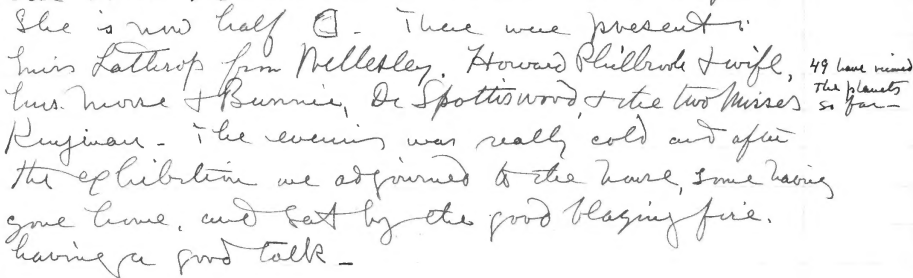 She is now half. There were present:
Miss Lathrop from Wellesley. Howard Philbrook & wife,
Mrs. Morse & Bunnie, Dr Spottiswood & the two Misses
Kingman - The evening was really cold and after
the exhibition we adjourned to the house, some having
gone home, and sat by the good blazing fire.
having a good talk -
49 have viewed
the planets
so far -